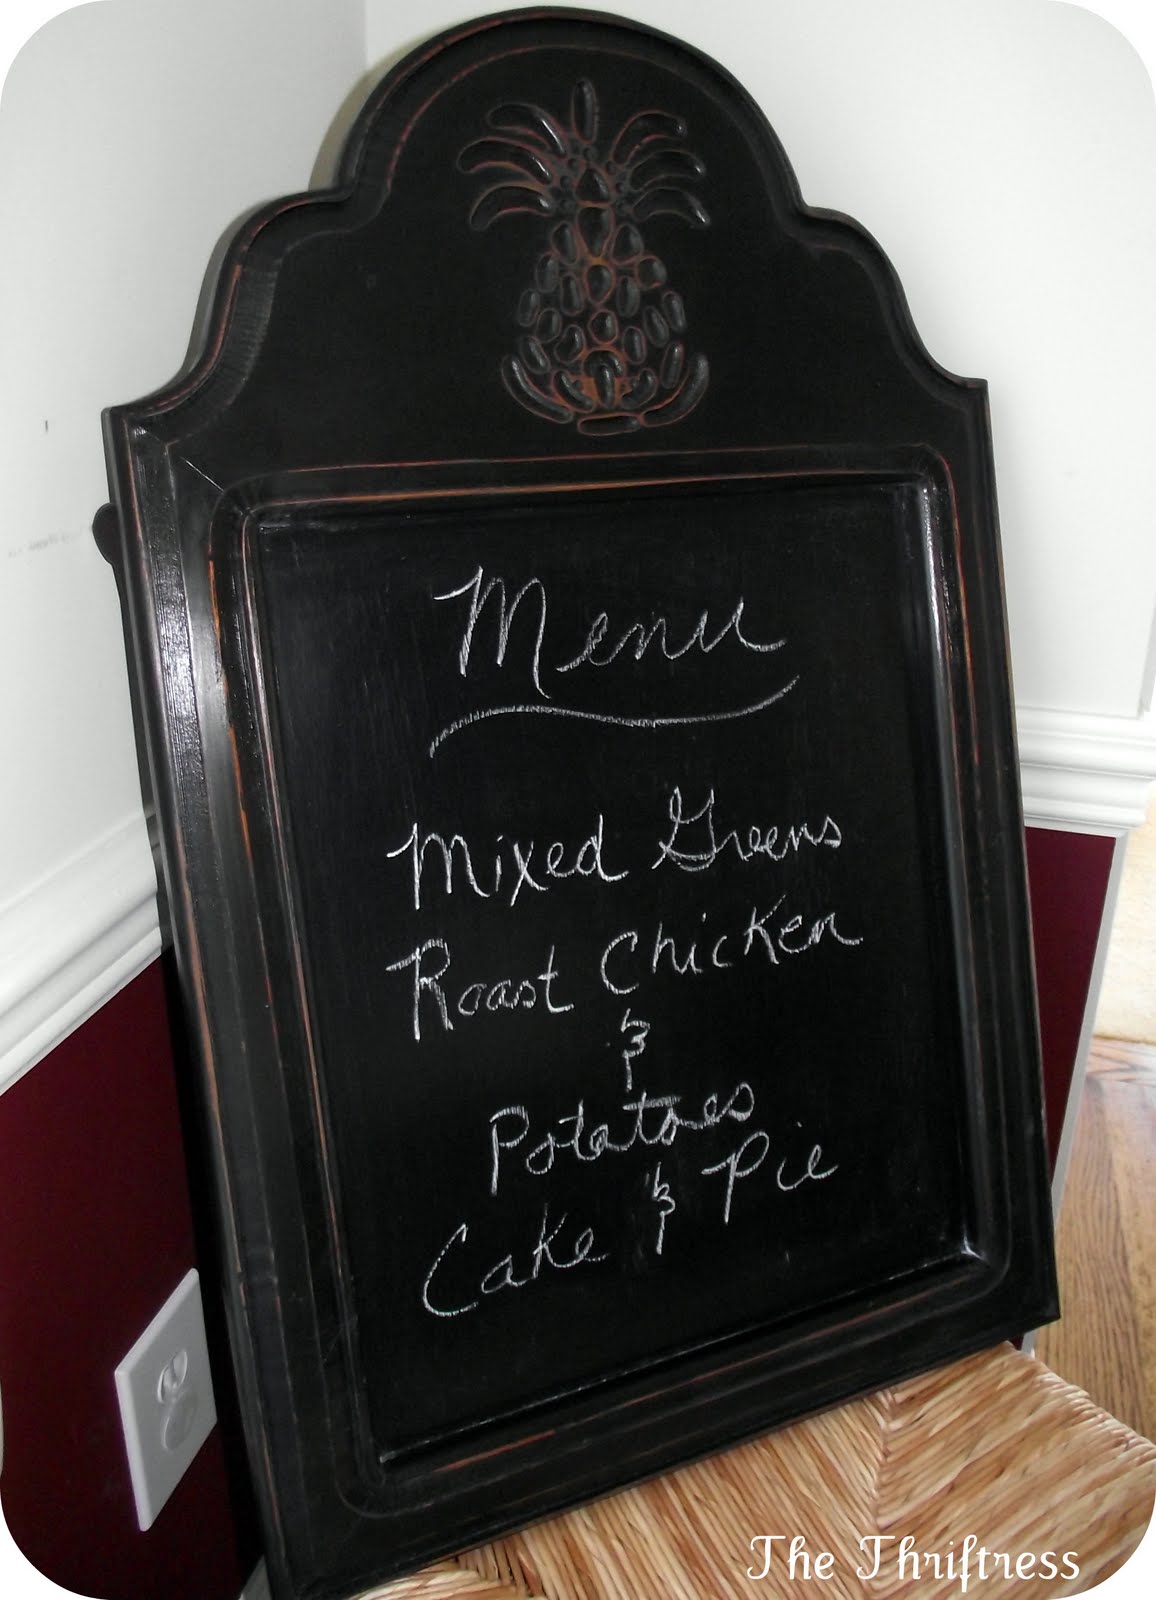 Menu
Mixed Greens
Roast Chicken
&
Potatoes
Cake & Pie
The Thriftress